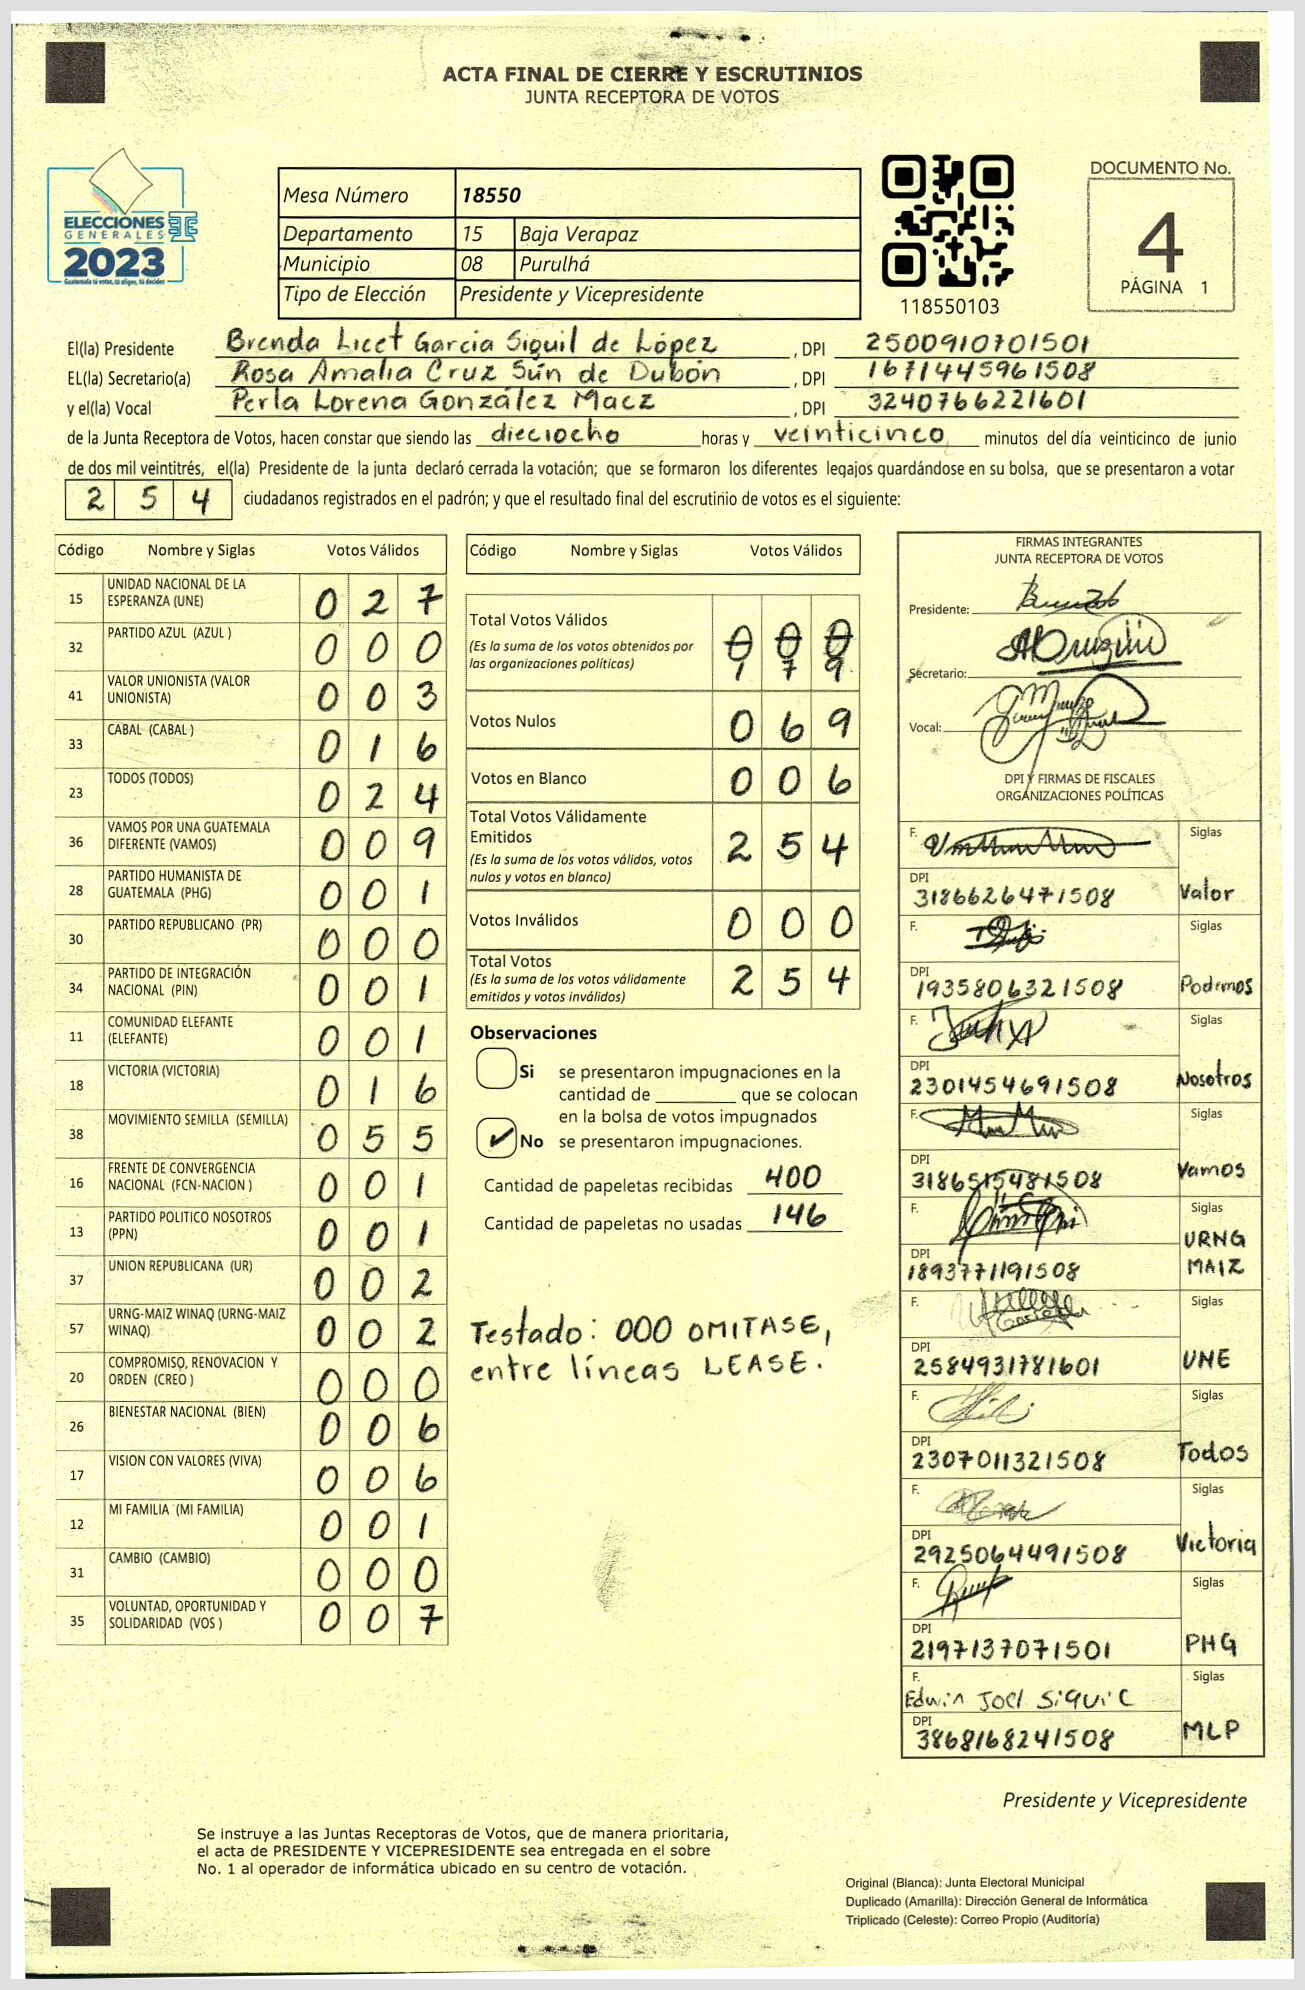 ACTA FINAL DE CIERRE Y ESCRUTINIOS
JUNTA RECEPTORA DE VOTOS
ELECCIONES
GENERALES
2023
Guatemala tú votas, tú eliges, tú decides
Mesa Número 18550
Departamento 15 Baja Verapaz
Municipio 08 Purulhá
Tipo de Elección Presidente y Vicepresidente
118550103
DOCUMENTO No.
4
PÁGINA 1
El(la) Presidente Brenda Licet Garcia Siquil de López , DPI 2500910701501
EL(la) Secretario(a) Rosa Amalia Cruz Sún de Dubón , DPI 1671445961508
y el(la) Vocal Perla Lorena González Macz , DPI 3240766221601
de la Junta Receptora de Votos, hacen constar que siendo las dieciocho horas y veinticinco minutos del día veinticinco de junio
de dos mil veintitrés, el(la) Presidente de la junta declaró cerrada la votación; que se formaron los diferentes legajos quardándose en su bolsa, que se presentaron a votar
2 5 4 ciudadanos registrados en el padrón; y que el resultado final del escrutinio de votos es el siguiente:
Código Nombre y Siglas Votos Válidos
15 UNIDAD NACIONAL DE LA
ESPERANZA (UNE) 0 2 7
32 PARTIDO AZUL (AZUL ) 0 0 0
41 VALOR UNIONISTA (VALOR
UNIONISTA) 0 0 3
33 CABAL (CABAL ) 0 1 6
23 TODOS (TODOS) 0 2 4
36 VAMOS POR UNA GUATEMALA
DIFERENTE (VAMOS) 0 0 9
28 PARTIDO HUMANISTA DE
GUATEMALA (PHG) 0 0 1
30 PARTIDO REPUBLICANO (PR) 0 0 0
34 PARTIDO DE INTEGRACIÓN
NACIONAL (PIN) 0 0 1
11 COMUNIDAD ELEFANTE
(ELEFANTE) 0 0 1
18 VICTORIA (VICTORIA) 0 1 6
38 MOVIMIENTO SEMILLA (SEMILLA) 0 5 5
16 FRENTE DE CONVERGENCIA
NACIONAL (FCN-NACION ) 0 0 1
13 PARTIDO POLITICO NOSOTROS
(PPN) 0 0 1
37 UNION REPUBLICANA (UR) 0 0 2
57 URNG-MAIZ WINAQ (URNG-MAIZ
WINAQ) 0 0 2
20 COMPROMISO, RENOVACION Y
ORDEN (CREO ) 0 0 0
26 BIENESTAR NACIONAL (BIEN) 0 0 6
17 VISION CON VALORES (VIVA) 0 0 6
12 MI FAMILIA (MI FAMILIA) 0 0 1
31 CAMBIO (CAMBIO) 0 0 0
35 VOLUNTAD, OPORTUNIDAD Y
SOLIDARIDAD (VOS ) 0 0 7
Código Nombre y Siglas Votos Válidos
Total Votos Válidos 0 0 0
(Es la suma de los votos obtenidos por
las organizaciones políticas) 1 7 9
Votos Nulos 0 6 9
Votos en Blanco 0 0 6
Total Votos Válidamente
Emitidos 2 5 4
(Es la suma de los votos válidos, votos
nulos y votos en blanco)
Votos Inválidos 0 0 0
Total Votos 2 5 4
(Es la suma de los votos válidamente
emitidos y votos inválidos)
Observaciones
Si se presentaron impugnaciones en la
cantidad de ________ que se colocan
en la bolsa de votos impugnados
No se presentaron impugnaciones.
Cantidad de papeletas recibidas 400
Cantidad de papeletas no usadas 146
Testado: 000 OMITASE,
entre líneas LEASE.
FIRMAS INTEGRANTES
JUNTA RECEPTORA DE VOTOS
Presidente:
Secretario:
Vocal:
DPI Y FIRMAS DE FISCALES
ORGANIZACIONES POLÍTICAS
F. Siglas
DPI
3186626471508 Valor
F. Siglas
DPI
1935806321508 Podemos
F. Siglas
DPI
2301454691508 Nosotros
F. Siglas
DPI
3186515481508 Vamos
F. Siglas
URNG
DPI
1893771191508 MAIZ
F. Siglas
DPI
2584931781601 UNE
F. Siglas
DPI
2307011321508 Todos
F. Siglas
DPI
2925064491508 Victoria
F. Siglas
DPI
2197137071501 PHG
F. Siglas
Edwin Joel Siquic
DPI
3868168241508 MLP
Presidente y Vicepresidente
Se instruye a las Juntas Receptoras de Votos, que de manera prioritaria,
el acta de PRESIDENTE Y VICEPRESIDENTE sea entregada en el sobre
No. 1 al operador de informática ubicado en su centro de votación.
Original (Blanca): Junta Electoral Municipal
Duplicado (Amarilla): Dirección General de Informática
Triplicado (Celeste): Correo Propio (Auditoría)